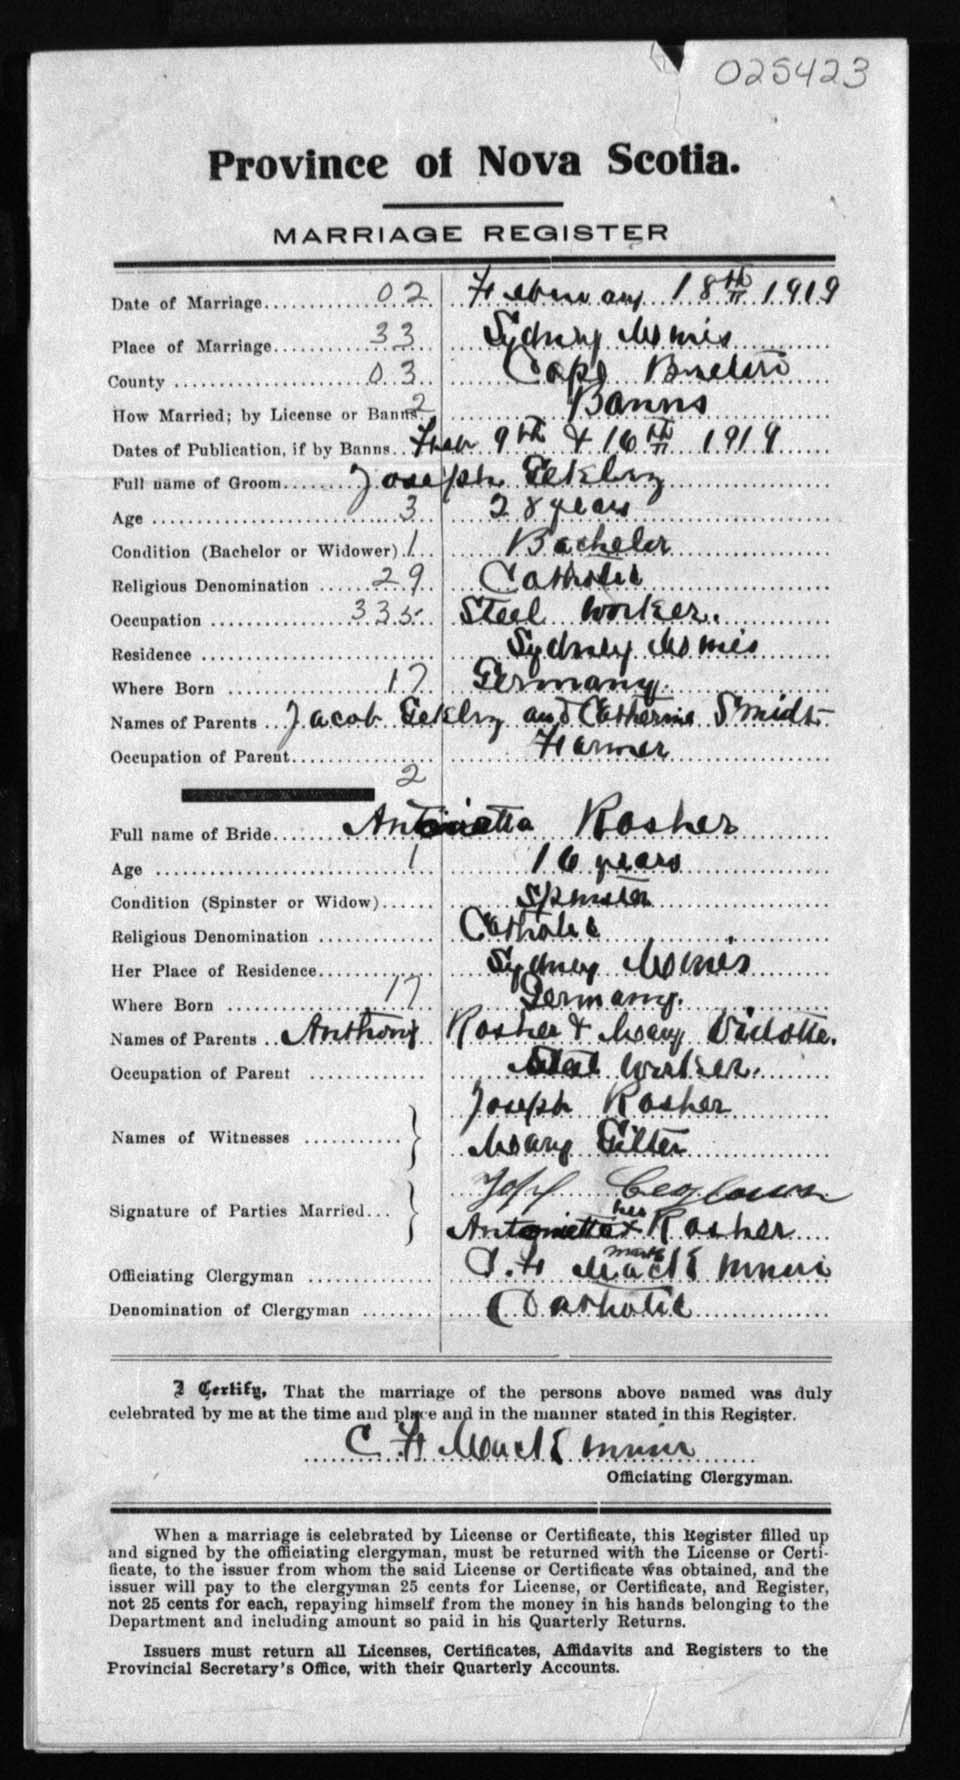 025423
Province of Nova Scotia.
MARRIAGE REGISTER
Date of Marriage 02 February 18th 1919
Place of Marriage 33 Sydney Mines
County 03 Cape Breton
How Married; by License or Banns 2 Banns
Dates of Publication, if by Banns Feb 9th & 16th 1919
Full name of Groom Joseph
Age 3 28 years
Condition (Bachelor or Widower) 1 Bachelor
Religious Denomination 29 Catholic
Occupation 335 Steel Worker.
Residence Sydney Mines
Where Born 17 Germany
Names of Parents Jacob and Catherine Smidt
Occupation of Parent Farmer
2
Full name of Bride Antonietta Rosher
Age 1 16 years
Condition (Spinster or Widow) Spinster
Religious Denomination Catholic
Her Place of Residence Sydney Mines
Where Born 17 Germany.
Names of Parents Anthony Rosher & Mary
Occupation of Parent Steel Worker.
Names of Witnesses Joseph Rosher
Mary
Signature of Parties Married
her
Antonietta x Rosher
mark
Officiating Clergyman
Denomination of Clergyman Catholic
I Certify, That the marriage of the persons above named was duly
celebrated by me at the time and place and in the manner stated in this Register.
C H MacK
Officiating Clergyman.
When a marriage is celebrated by License or Certificate, this Register filled up
and signed by the officiating clergyman, must be returned with the License or Certi-
ficate, to the issuer from whom the said License or Certificate was obtained, and the
issuer will pay to the clergyman 25 cents for License, or Certificate, and Register,
not 25 cents for each, repaying himself from the money in his hands belonging to the
Department and including amount so paid in his Quarterly Returns.
Issuers must return all Licenses, Certificates, Affidavits and Registers to the
Provincial Secretary's Office, with their Quarterly Accounts.